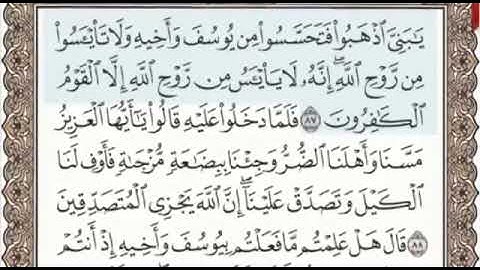 يَٰبَنِىَّ ٱذْهَبُوا۟ فَتَحَسَّسُوا۟ مِن يُوسُفَ وَأَخِيهِ وَلَا تَا۟يْـَٔسُوا۟
مِن رَّوْحِ ٱللَّهِ ۖ إِنَّهُۥ لَا يَا۟يْـَٔسُ مِن رَّوْحِ ٱللَّهِ إِلَّا ٱلْقَوْمُ
ٱلْكَٰفِرُونَ ٨٧ فَلَمَّا دَخَلُوا۟ عَلَيْهِ قَالُوا۟ يَٰٓأَيُّهَا ٱلْعَزِيزُ
مَسَّنَا وَأَهْلَنَا ٱلضُّرُّ وَجِئْنَا بِبِضَٰعَةٍ مُّزْجَىٰةٍ فَأَوْفِ لَنَا
ٱلْكَيْلَ وَتَصَدَّقْ عَلَيْنَآ ۖ إِنَّ ٱللَّهَ يَجْزِى ٱلْمُتَصَدِّقِينَ
٨٨ قَالَ هَلْ عَلِمْتُم مَّا فَعَلْتُم بِيُوسُفَ وَأَخِيهِ إِذْ أَنتُمْ